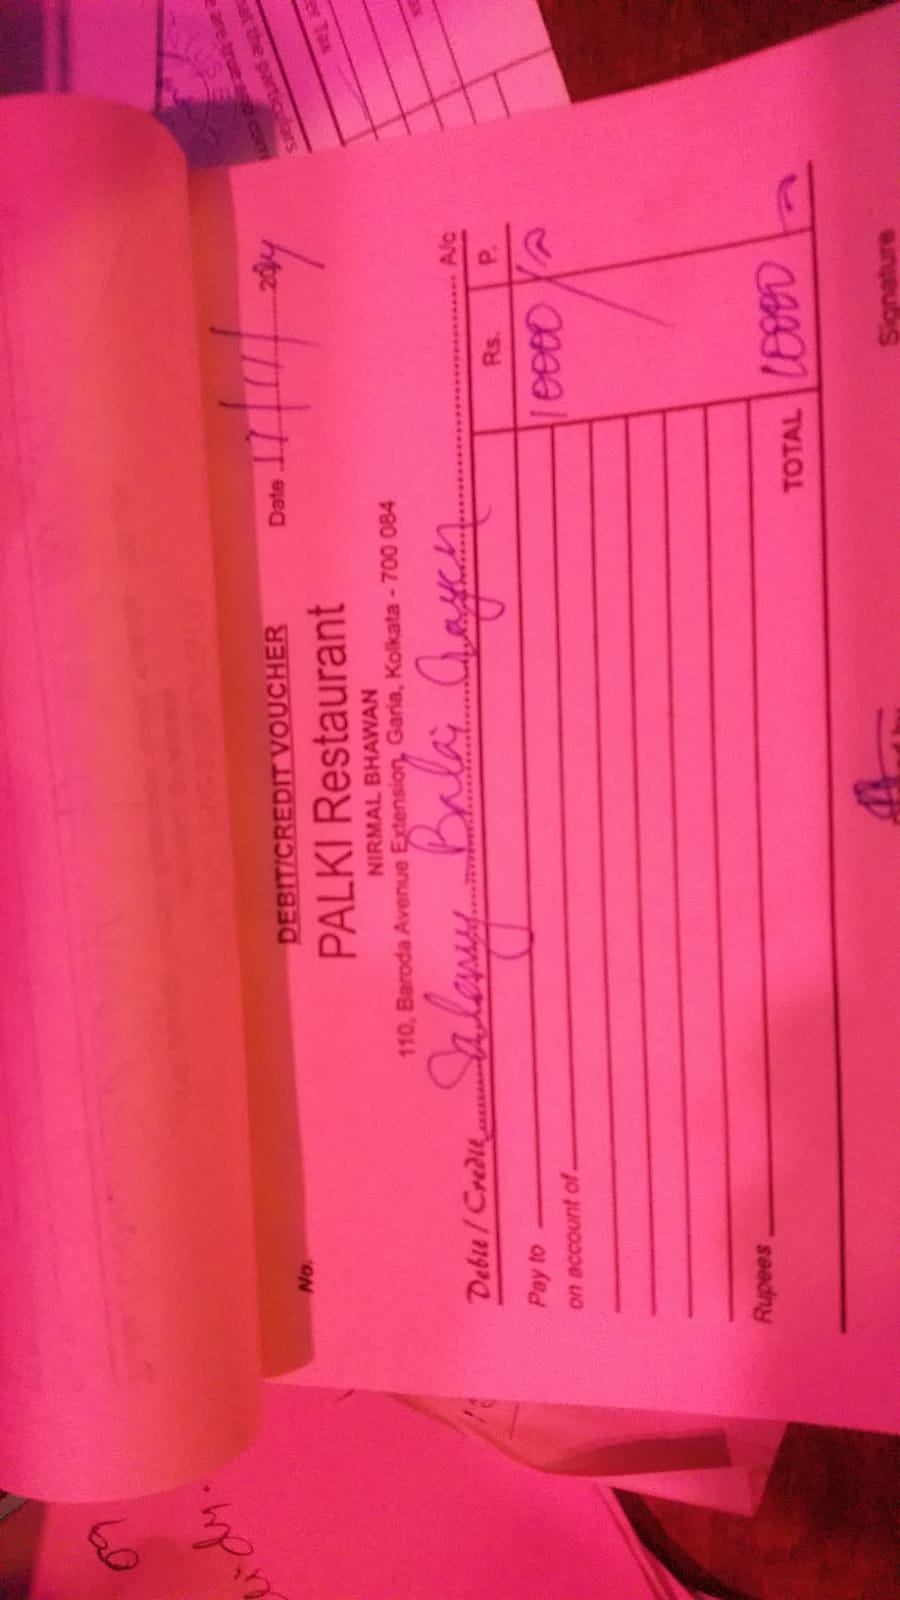 DEBIT/CREDIT VOUCHER
No.
Date 17/11/2024
PALKI Restaurant
NIRMAL BHAWAN
110, Baroda Avenue Extension, Garia, Kolkata - 700 084
Debit / Credit Salary Balai Gayen A/c
Rs. P.
Pay to 10000/-
on account of
Rupees
TOTAL 10000/-
Signature